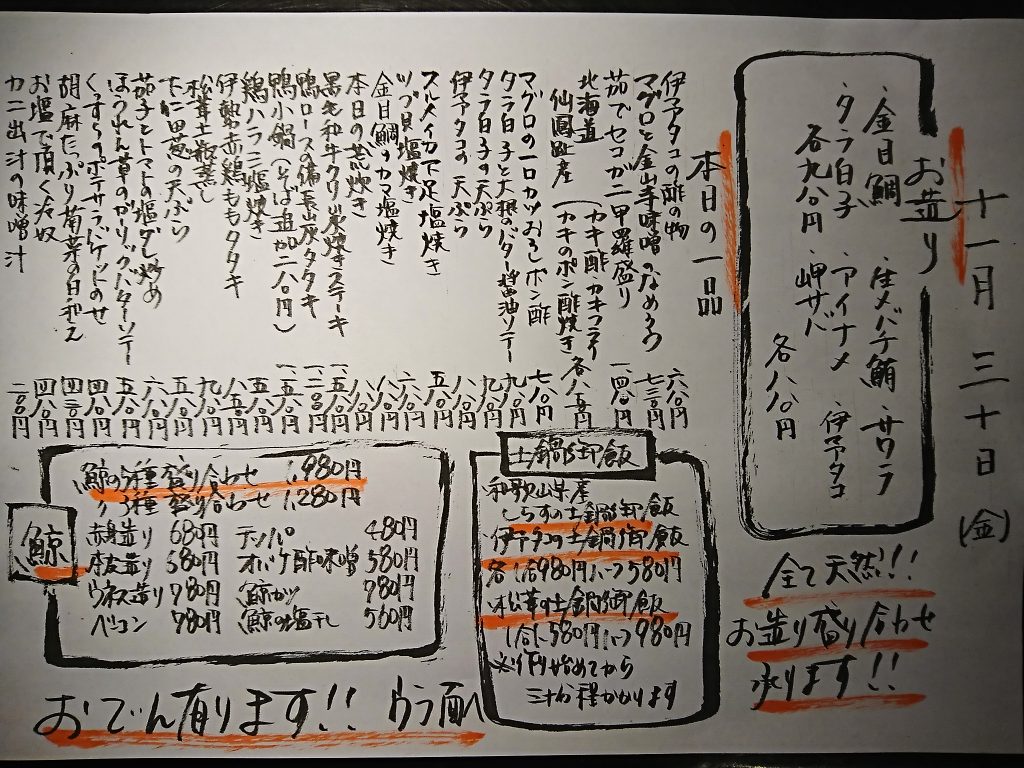 十一月三十日(金)
お造り
・金目鯛 ・生メバチ鮪 ・サワラ
・タラ白子 各九八〇円
・アイナメ ・伊予タコ
・岬サバ 各八八〇円
全て天然!!
お造り盛り合わせ
承ります!!
本日の一品
伊予アタコの酢の物 六八〇円
マグロと金山寺味噌のなめろう 七三〇円
茹でセコガニ甲羅盛り 一四八〇円
北海道仙鳳趾産(カキ酢 カキフライ カキのポン酢焼き 各八五〇円
マグロの一口カツおろしポン酢 七八〇円
タラ白子と大根のバター醤油ソテー 九八〇円
タラ白子の天ぷら 九八〇円
伊予アタコの天ぷら 八八〇円
スルメイカ下足塩焼き 五八〇円
ツブ貝塩焼き 六八〇円
金目鯛のカマ塩焼き 八八〇円
本日の煮炊き 八八〇円
黒毛和牛クリ炭焼きステーキ 一五八〇円
鴨ロースの備長炭タタキ 一二八〇円
鴨小鍋(そば追加二八〇円) 一五八〇円
鶏ハラミ塩焼き 五八〇円
伊勢赤鶏ももタタキ 八五〇円
松茸土瓶蒸し 九八〇円
下仁田葱の天ぷら 五八〇円
茄子とトマトの塩ダレ炒め 六八〇円
ほうれん草のガーリックバターソテー 五八〇円
くんすらのポテサラバケットのせ 四八〇円
胡麻たっぷり菊菜の日和え 四三〇円
お塩で頂く冷奴 四八〇円
カニ出汁の味噌汁 二八〇円
土鍋御飯
・和歌山県産
しらすの土鍋御飯
・伊予タコの土鍋御飯
各1合980円ハーフ580円
・松茸の土鍋御飯
1合1,580円ハーフ980円
※作り始めてから
三十分程かかります
鯨
鯨の5種盛り合わせ 1,980円
〃 3種盛り合わせ 1,280円
赤身造り 680円 テッパ 480円
本皮造り 580円 オバケ酢味噌 580円
ウネス造り 780円 鯨カツ 780円
ベーコン 780円 鯨の塩干し 560円
おでん有ります!! ウラ面へ